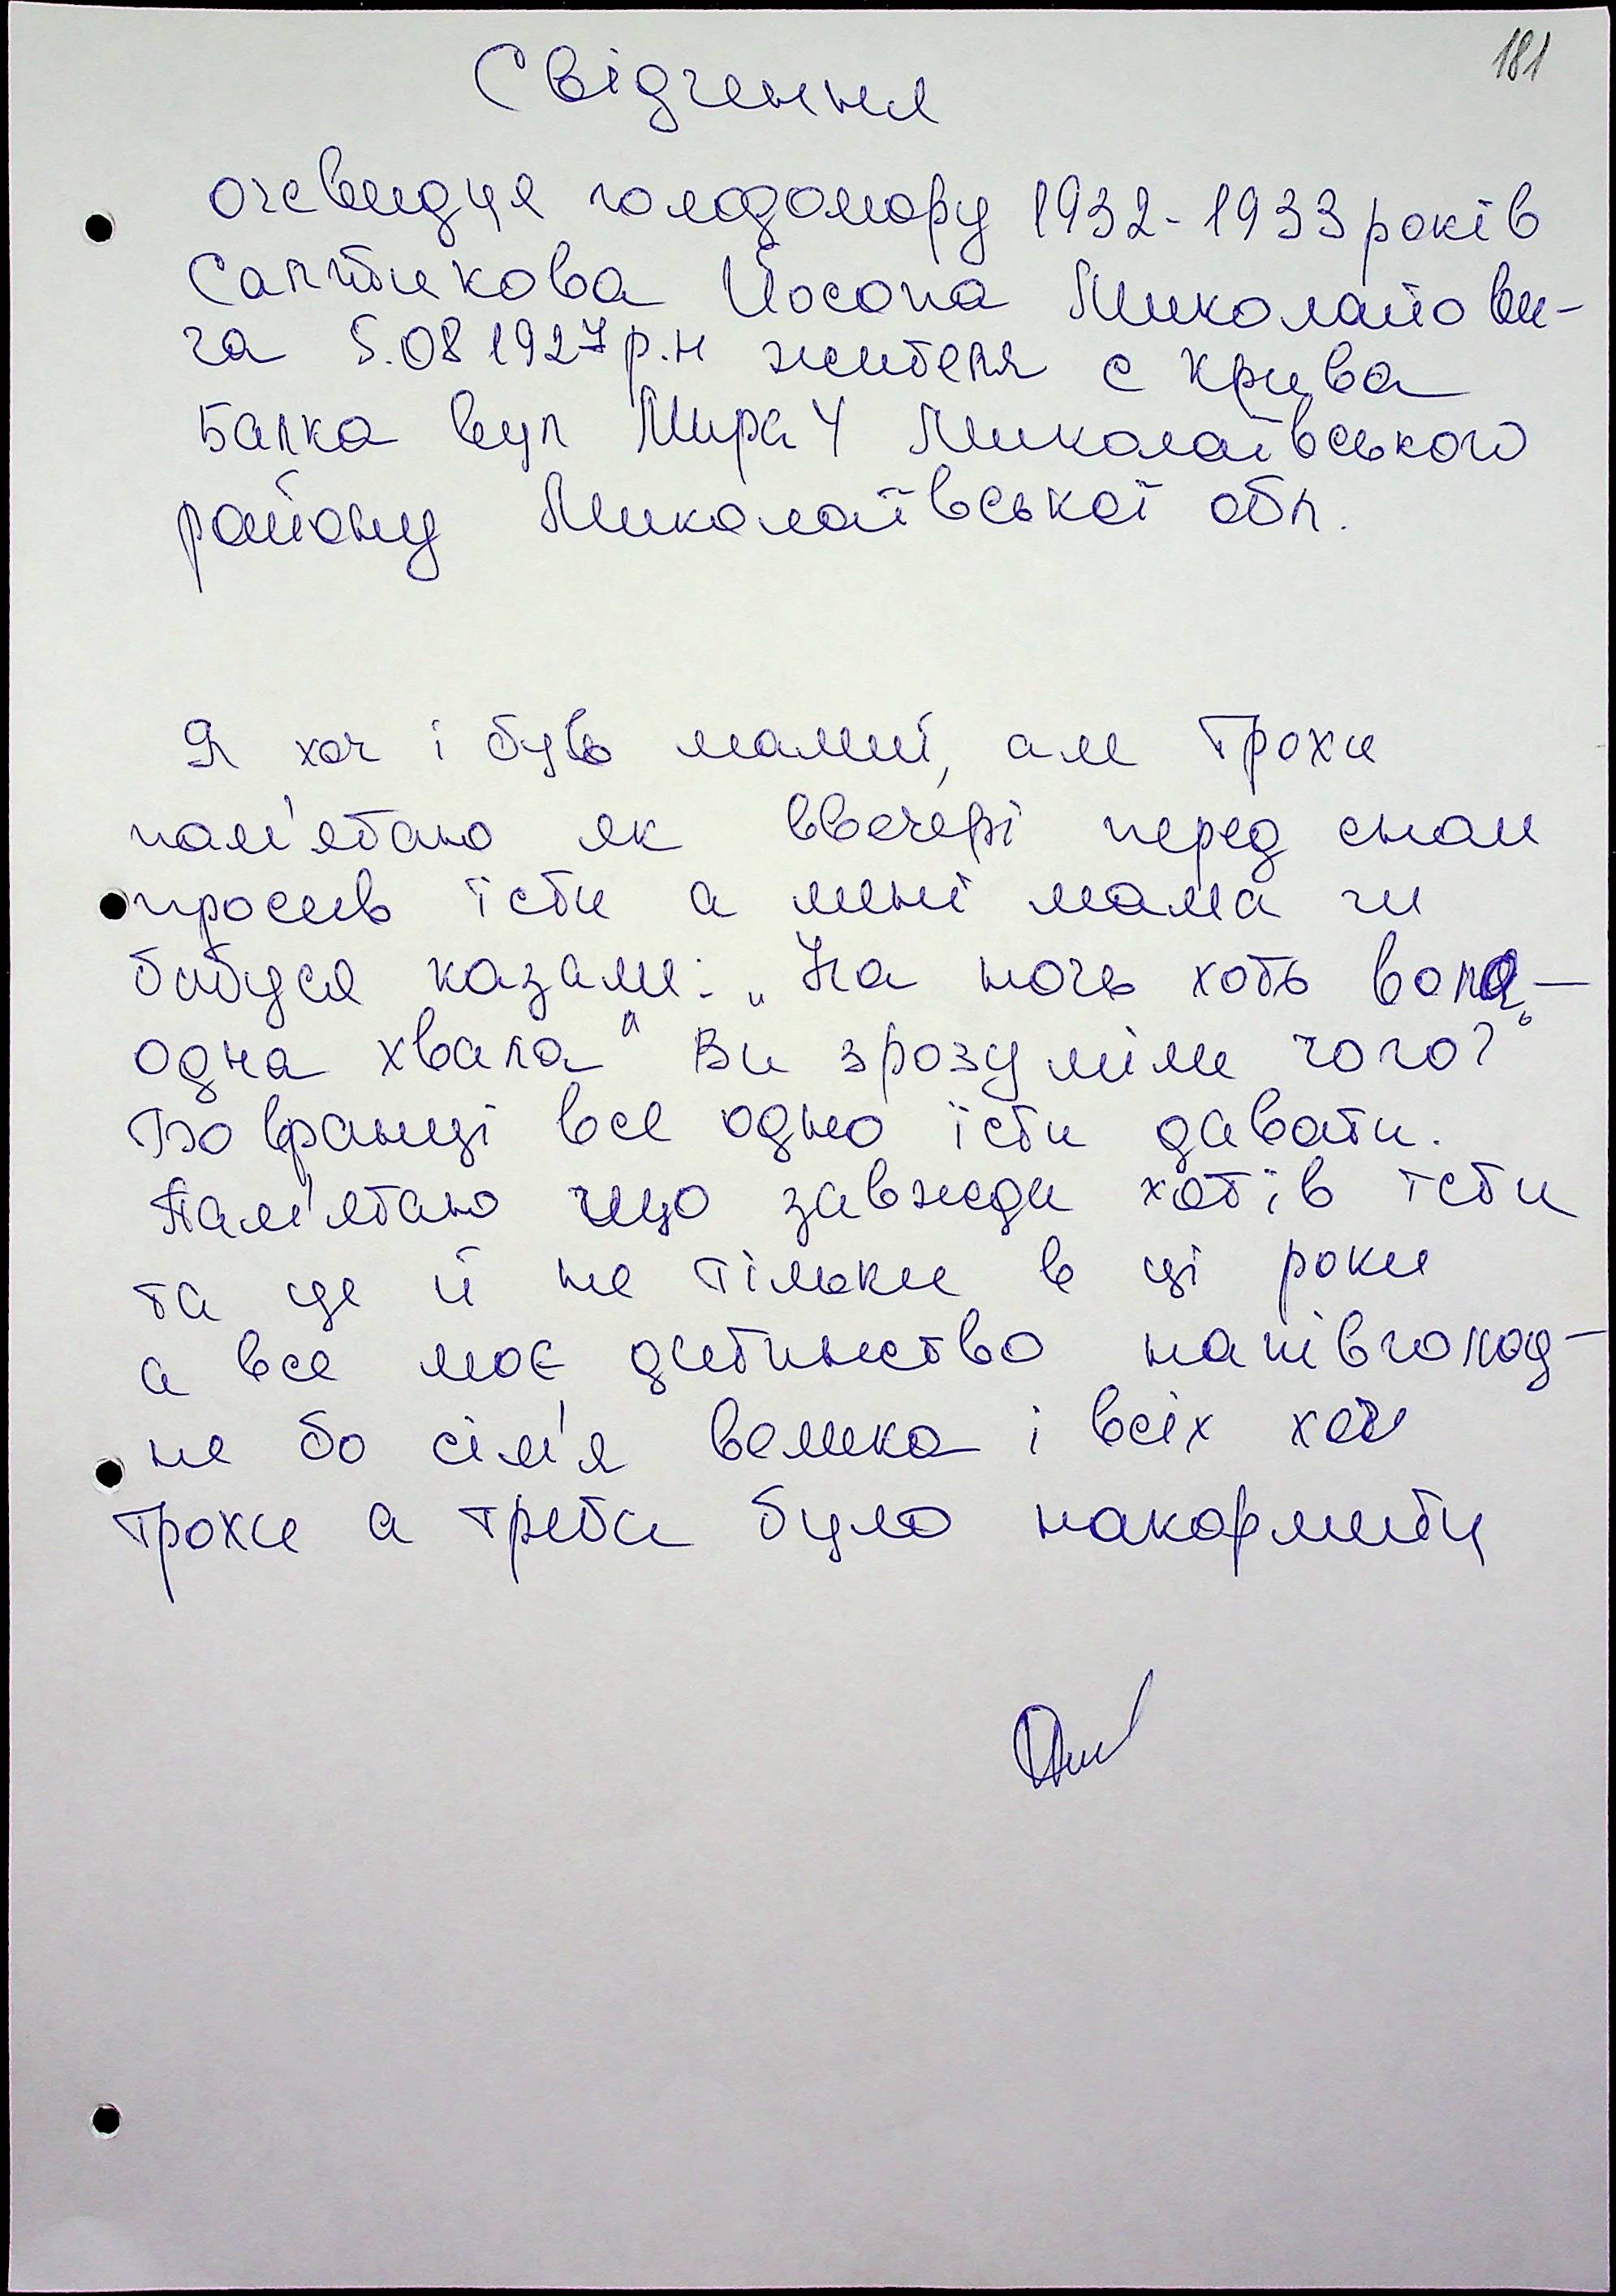 181
Свідчення
очевидця голодомору 1932-1933 років
Салтикова Йосопа Миколайови-
ча 5.08 1927 р.н жителя с Крива
Балка вул Мира 4 Миколаївського
району Миколаївської обл.
Я хоч і був малий, але трохи
пам'ятаю як ввечері перед сном
просив їсти а мені мама чи
бабуся казали: „На ночь хоть вола -
одна хвала" Ви зрозуміли чого?
Бо вранці все одно їсти давати.
Пам'ятаю що завжди хотів їсти
та це й не тільки в ці роки
а все моє дитинство напівголод-
не бо сім'я велика і всіх хоч
трохи а треба було накормити